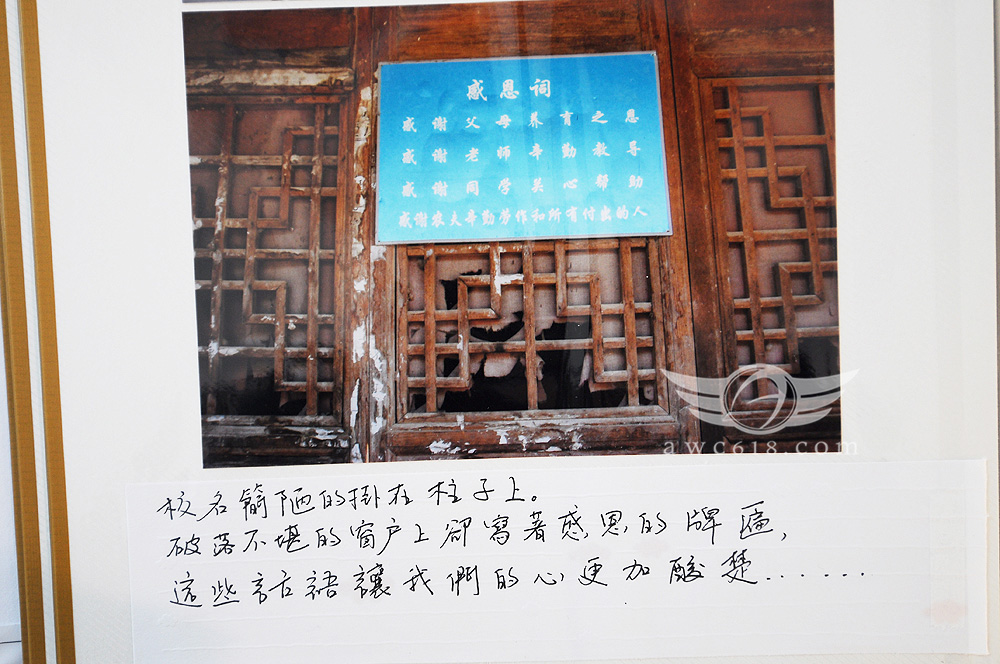 感恩词
感谢父母养育之恩
感谢老师辛勤教导
感谢同学关心帮助
感谢农夫辛勤劳作和所有付出的人
awc618.com
校名簡陋的掛在柱子上。
破落不堪的窗户上卻寫著感恩的牌匾，
這些言語讓我們的心更加酸楚.......